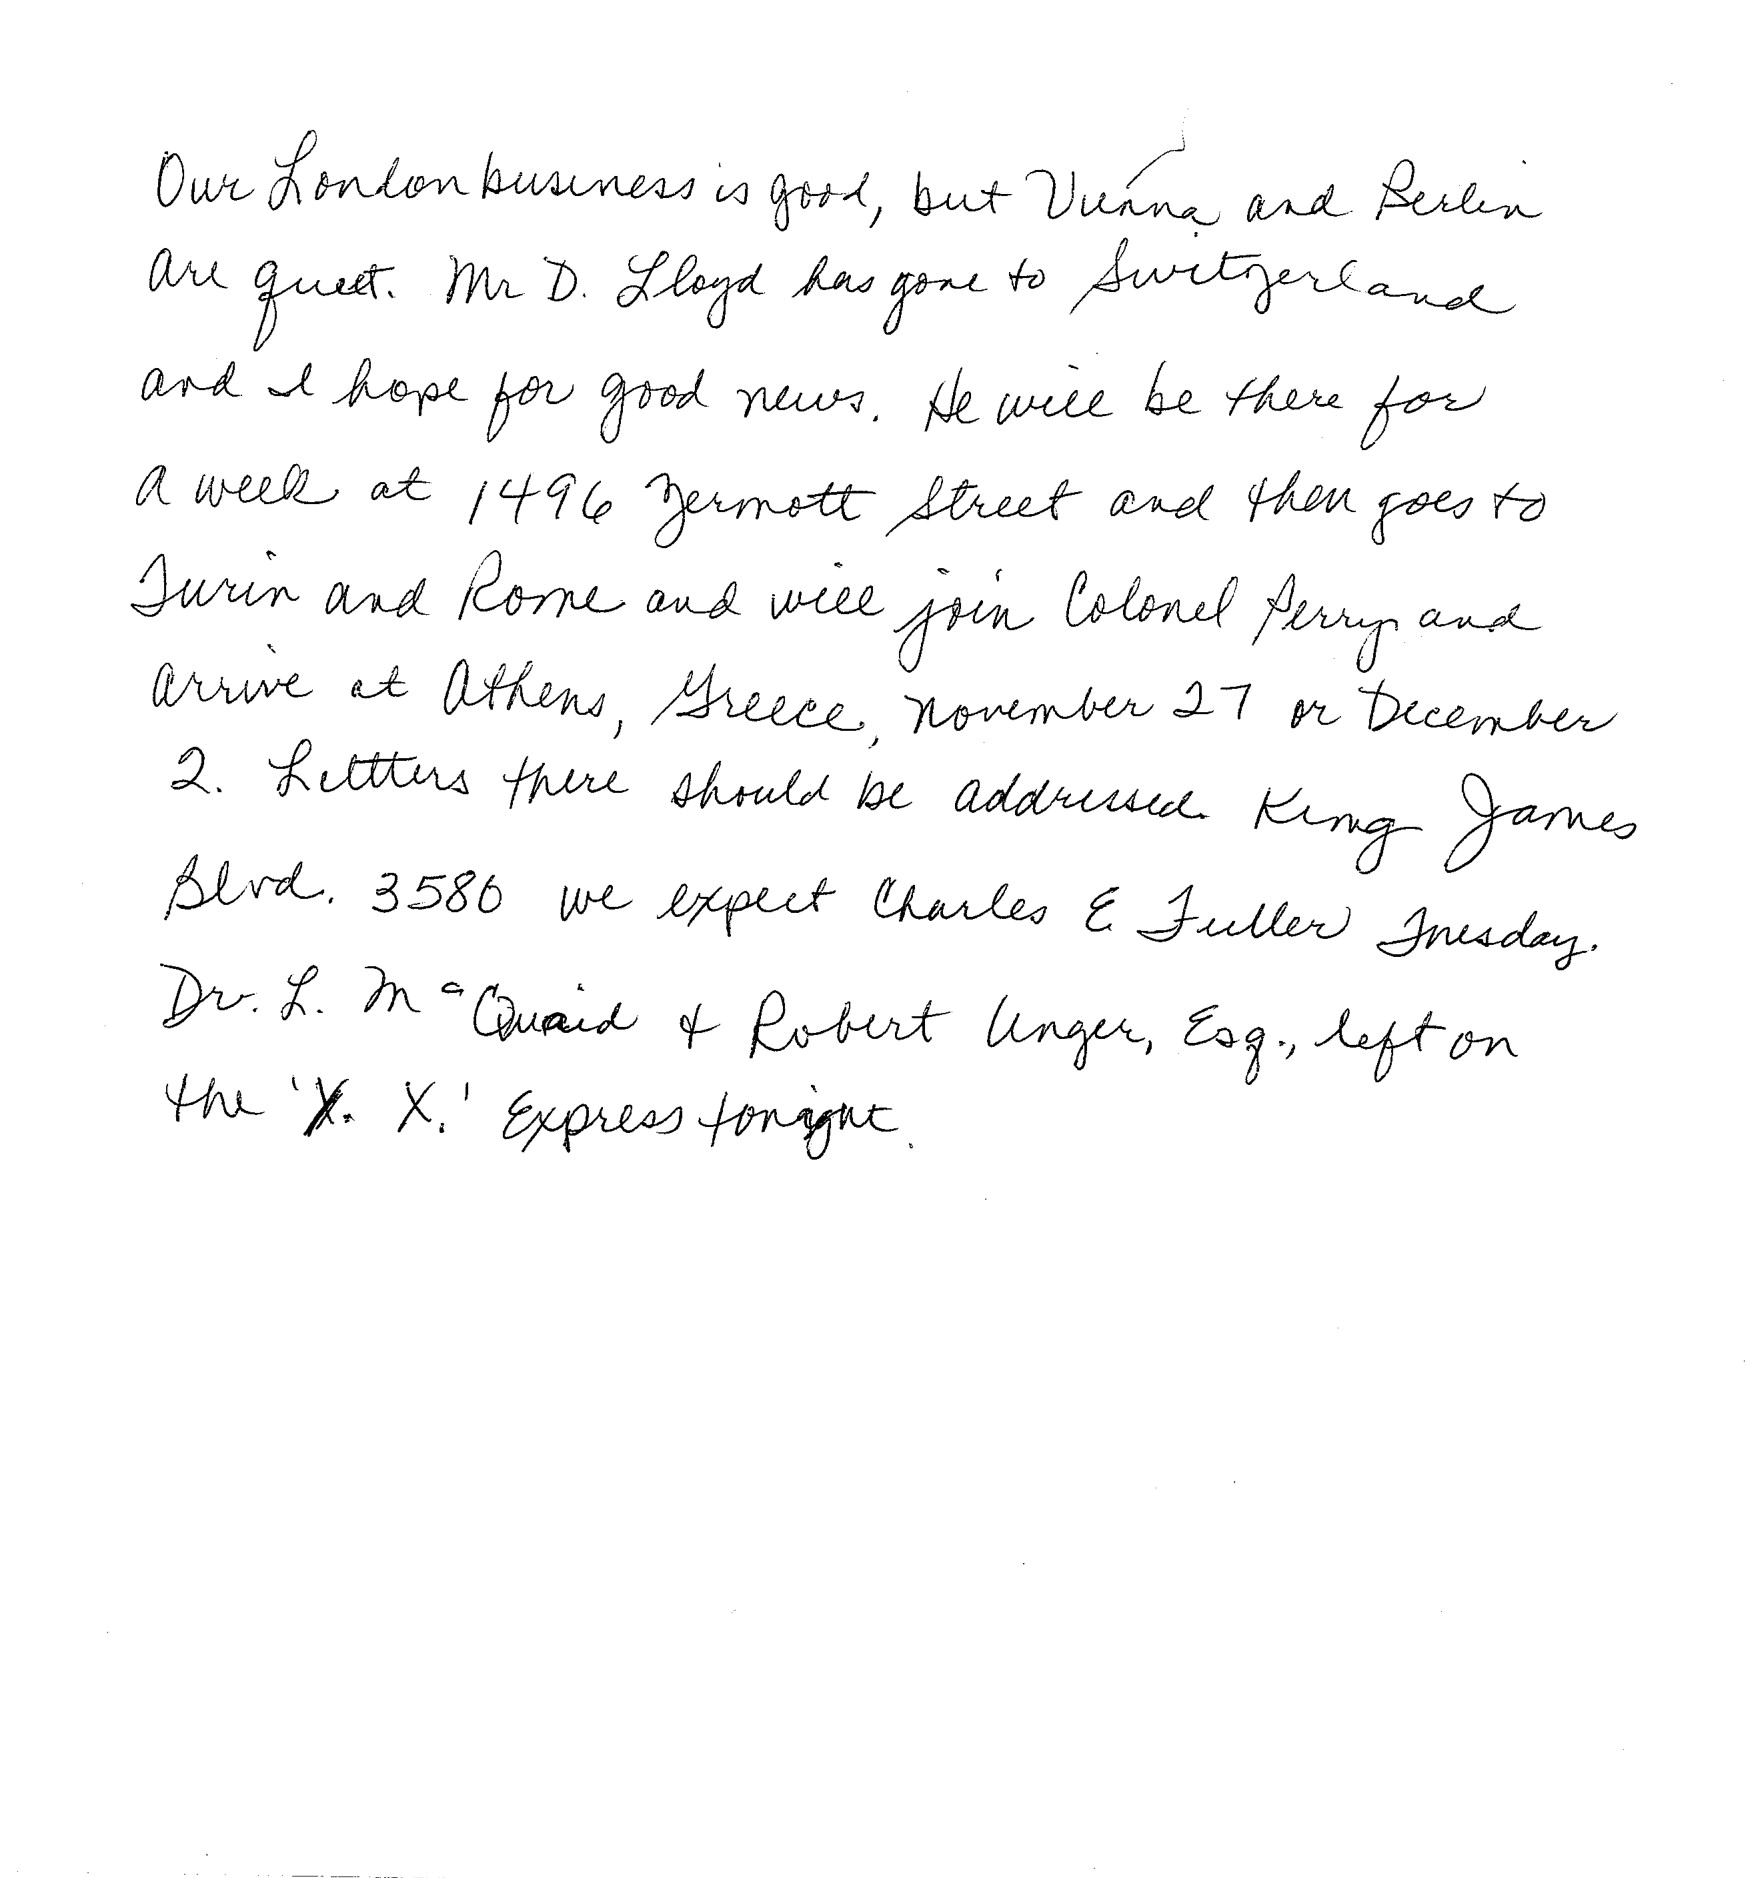 Our London business is good, but Vienna and Berlin
are quiet. Mr D. Lloyd has gone to Switzerland
and I hope for good news. He will be there for
a week at 1496 Zermott Street and then goes to
Turin and Rome and will join Colonel Perry and
arrive at Athens, Greece, November 27 or December
2. Letters there should be addressed. King James
Blvd. 3580 we expect Charles E. Fuller Tuesday.
Dr. L. McQuaid & Robert Unger, Esq., left on
the 'X. X.' Express tonight.